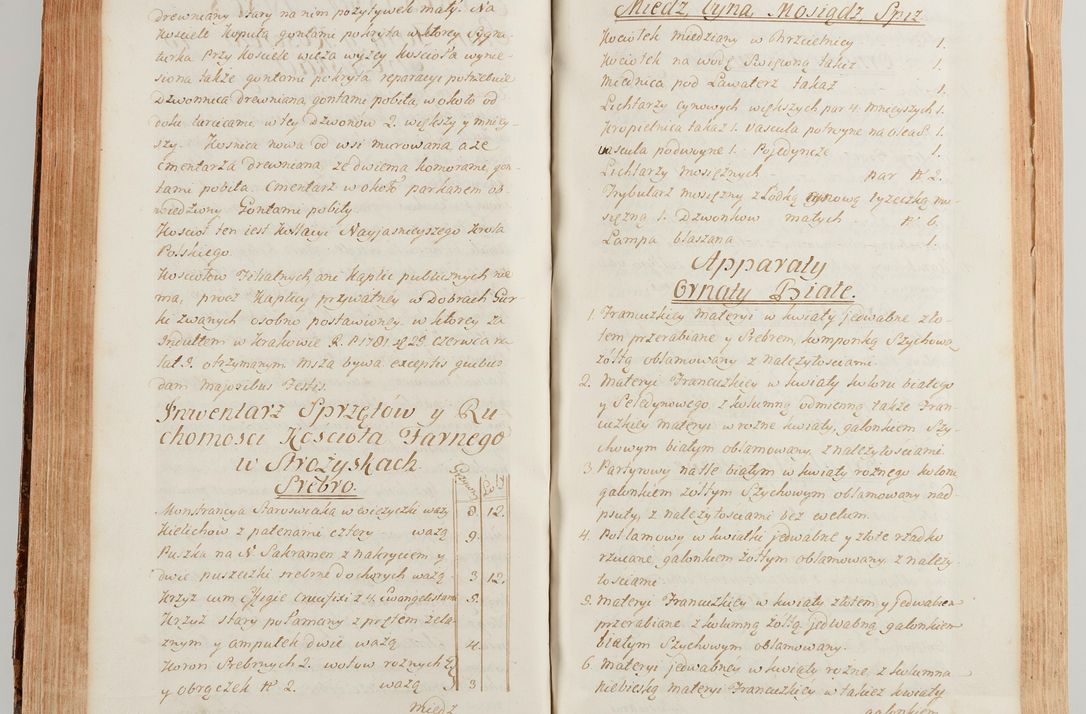 drewniany stary na nim pozytywek mały. Na
Kosciele Kopuła gontami pokryta w ktorey Sygna-
turka. Przy Kosciele wieża wyżey kościoła wynie-
siona także gontami pokryta reparacyi potrzebuie
Dzwonnica drewniana gontami pobita, w około od
dołu tarcicami, w tey Dzwonów 2. większy y mniey-
szy. Kosnica nowa od wsi murowana a ze
Cmentarza drewniana ze dwiema komorami, gon-
tami pobita. Cmentarz w około parkanem ob-
wiedziony Gontami pobity.
Kosciół ten iest Kollacyi Nayjasnieyszego Krola
Polskiego
Kosciołow Filialnych, ani Kaplic publicznych nie
ma, procz Kaplicy prywatney w Dobrach Gur-
ki zwanych osobno postawioney w ktorey za
Indultem w Krakowie R. P. 1781 d. 29 Czerwca na
lat 3. otrzymanym Msza bywa exceptis quibus-
dam Majoribus Festis.
Inwentarz Sprzętów y Ru
chomosci Kościoła Farnego
w Strożyskach
Srebro.
Grzywn Łoty
Monstrancya Staroswiecka w wieżyczki waży 8 12.
Kielichow z patenami cztery ważą 9.
Puszka na N. Sakramen. z nakryciem y
dwie puszeczki srebrne do chorych ważą 3 12.
Krzyż cum Effigie Crucifixi z 4. Ewangelistami 5.
Krzyż stary połamany z prętem żela-
znym y ampułek dwie ważą 4.
Koron Srebrnych 2. wotuw rożnych
y obrączek N 2. ważą 3
Miedz
Miedz, Cyna, Mosiądz, Spiż
Kociołek miedziany w Chrzcielnicy 1.
Kociołek na wodę Swięconą takiż 1.
Miednica pod Lawaterz takaż 1.
Lichtarzy cynowych większych par 4. mnieyszych 1.
Kropielnica takaż 1. Vascula potroyne na oleas. 1.
vascula podwoyne 1. Pojedyncze 1.
Lichtarzy mosiężnych par N 2.
Trybularz mosiężny z Łódką cynową łyżeczką mo-
siężną 1. Dzwonkow małych N 6.
Lampa blaszana 1.
Apparaty
Ornaty Białe.
1. Francuzkiey materyi w kwiaty jedwabne zło-
tem przerabiane y Srebrem, komponką Szychową
żółtą obłamowany z należytosciami.
2. Materyi Francuzkiey w kwiaty koloru białego
y Seledynowego, z kolumną odmienną także Fran-
cuzkiey materyi w rożne kwiaty, galonkiem Szy-
chowym białym obłamowany, z należytościami.
3. Partyrowy na tle białym w kwiaty rożnego koloru
galonkiem żółtym Szychowym obłamowany nad-
psuty, z należytosciami bez welum.
4. Potłamowy w kwiatki jedwabne y złote rzadko
rzucane, galonkiem żółtym obłamowany, z należy-
tosciami
5. Materyi Francuzkiey w kwiaty złotem y jedwabiem
przerabiane z kolumną żółtą jedwabną, galonkiem
białym Szychowym obłamowany.
6. Materyi jedwabney w kwiaty rożne, z kolumna
Niebieską materyi Francuzkiey w takież kwiaty
galonkiem